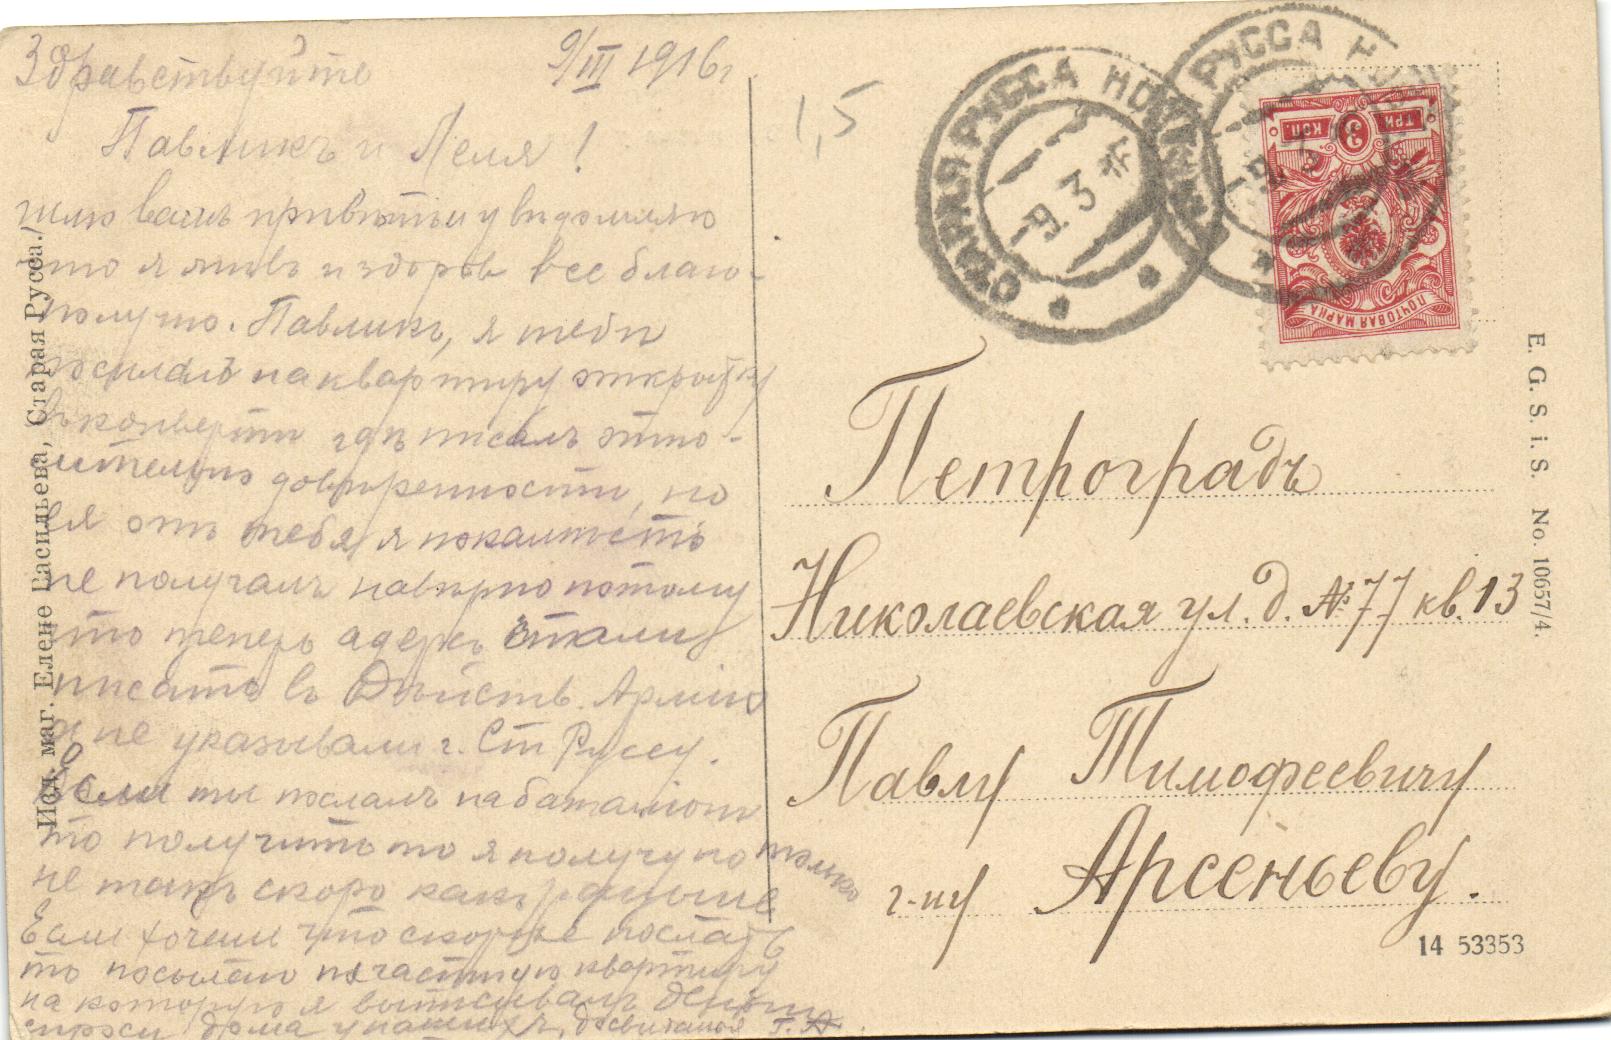 Здравствуйте 9/III 1916 г.
Павликъ и Леля!
шлю вамъ привѣтъ и увѣдомляю
что я живъ и здоровъ все благо-
получно. Павликъ, я тебѣ
посылалъ на квартиру открытку
въ конвертѣ гдѣ писалъ относ-
ительно довѣренности, но
отъ тебя я покамѣстъ
не получалъ навѣрно потому
что теперь адресъ стали
писать въ Дѣйств. Армію
а не указывали г. Ст Руссу.
Если ты послалъ на баталіонъ
то получить то я получу но только
не такъ скоро какъ раньше
Если хочешь что скорѣе послать
то посылай на частную квартиру
на которую я выписывалъ деньги
спроси дома у нашихъ, досвиданья Т. А.
Изд. маг. Елене Васильева, Старая Русса.
1,5
СТАРАЯ РУССА НОВГ.
9. 3 16
РУССА Н
ТРИ 3 КОП.
ПОЧТОВАЯ МАРКА
Петроградъ
Николаевская ул. д. № 77 кв. 13
Павлу Тимофеевичу
г-ну Арсеньеву.
14 53353
E. G. S. i. S. No. 10657/4.